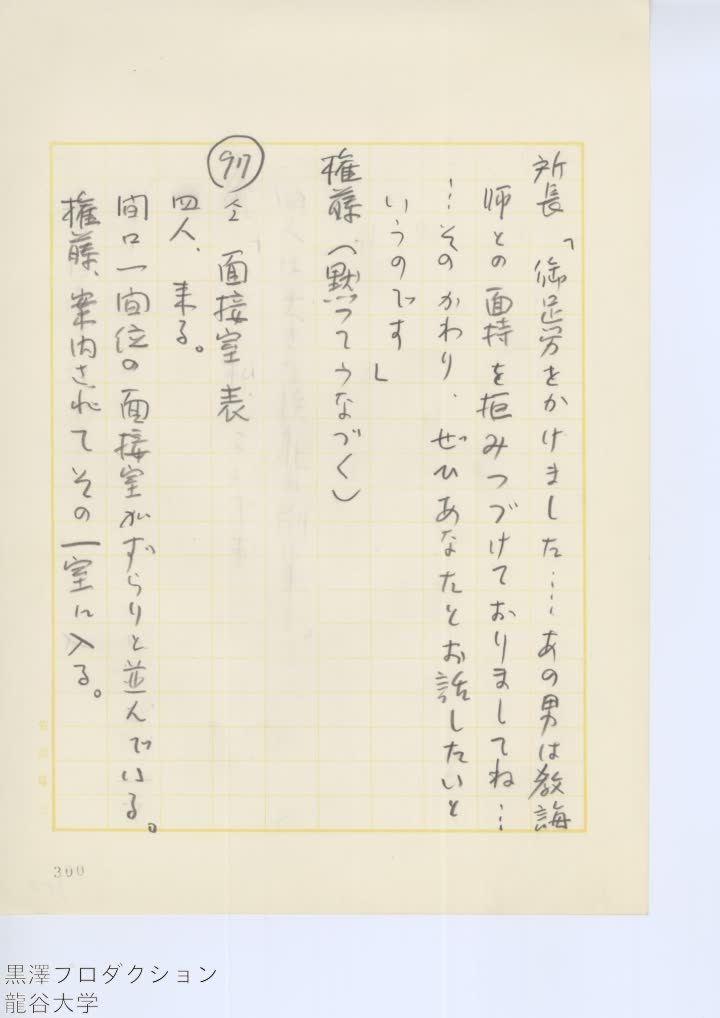 所長「御足労をかけました……あの男は教誨
師との面持を拒みつづけておりましてね…
…そのかわり、ぜひあなたとお話したいと
いうのです」
権藤(黙ってうなづく)
97 仝 面接室 表
四人、来る。
間口一間位の面接室がずらりと並んでいる。
権藤、案内されてその一室に入る。
300
黒澤プロダクション
龍谷大学